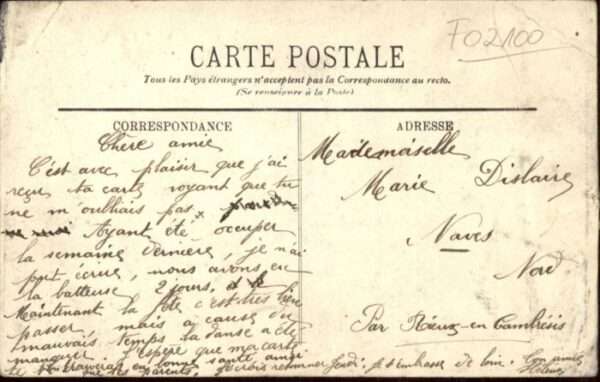 FO2100
CARTE POSTALE
Tous les Pays étrangers n'acceptent pas la Correspondance au recto.
(Se renseigner à la Poste)
CORRESPONDANCE
Chère amie
C'est avec plaisir que j'ai
reçue ta carte voyant que tu
ne m'oulbiais pas
Ayant été occuper
la semaine dernière, je n'ai
put écrire, nous avons eu
la batteuse 2 jours,
Maintenant la fête c'est très bien
passer mais a cause du
mauvais temps la danse a été
manquer j'espère que ma carte
te trouverai en bonne santé ainsi
que tes parents, je crois retourner Jeudi. je t'embrasse de loin. Ton amie
Hélène
ADRESSE
Mademoiselle
Marie Dislaire
Naves
Nord
Par Rieux-en Cambrésis